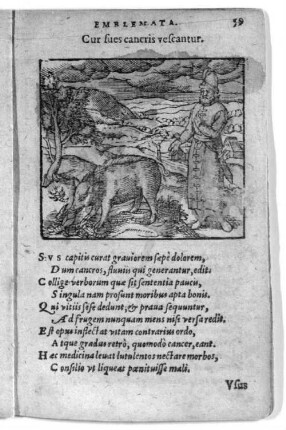 EMBLEMATA. 59
Cur sues cancris vescantur.
SVS capitis curat grauiorem sepè dolorem,
Dum cancros, fluuiis qui generantur, edit.
Collige verborum que sit sententia paucû,
Singula nam prosunt moribus apta bonis.
Qui vitiis sese dedunt, & praua sequuntur,
Ad frugem nunquam mens nisi versa redit.
Est opus inflectat vitam contrarius ordo,
Atque gradus retrò, quomodò cancer, eant.
Hæc medicina leuat lutulentos nectare morbos,
Consilio vt liqueas pœnituisse mali.
Vsus